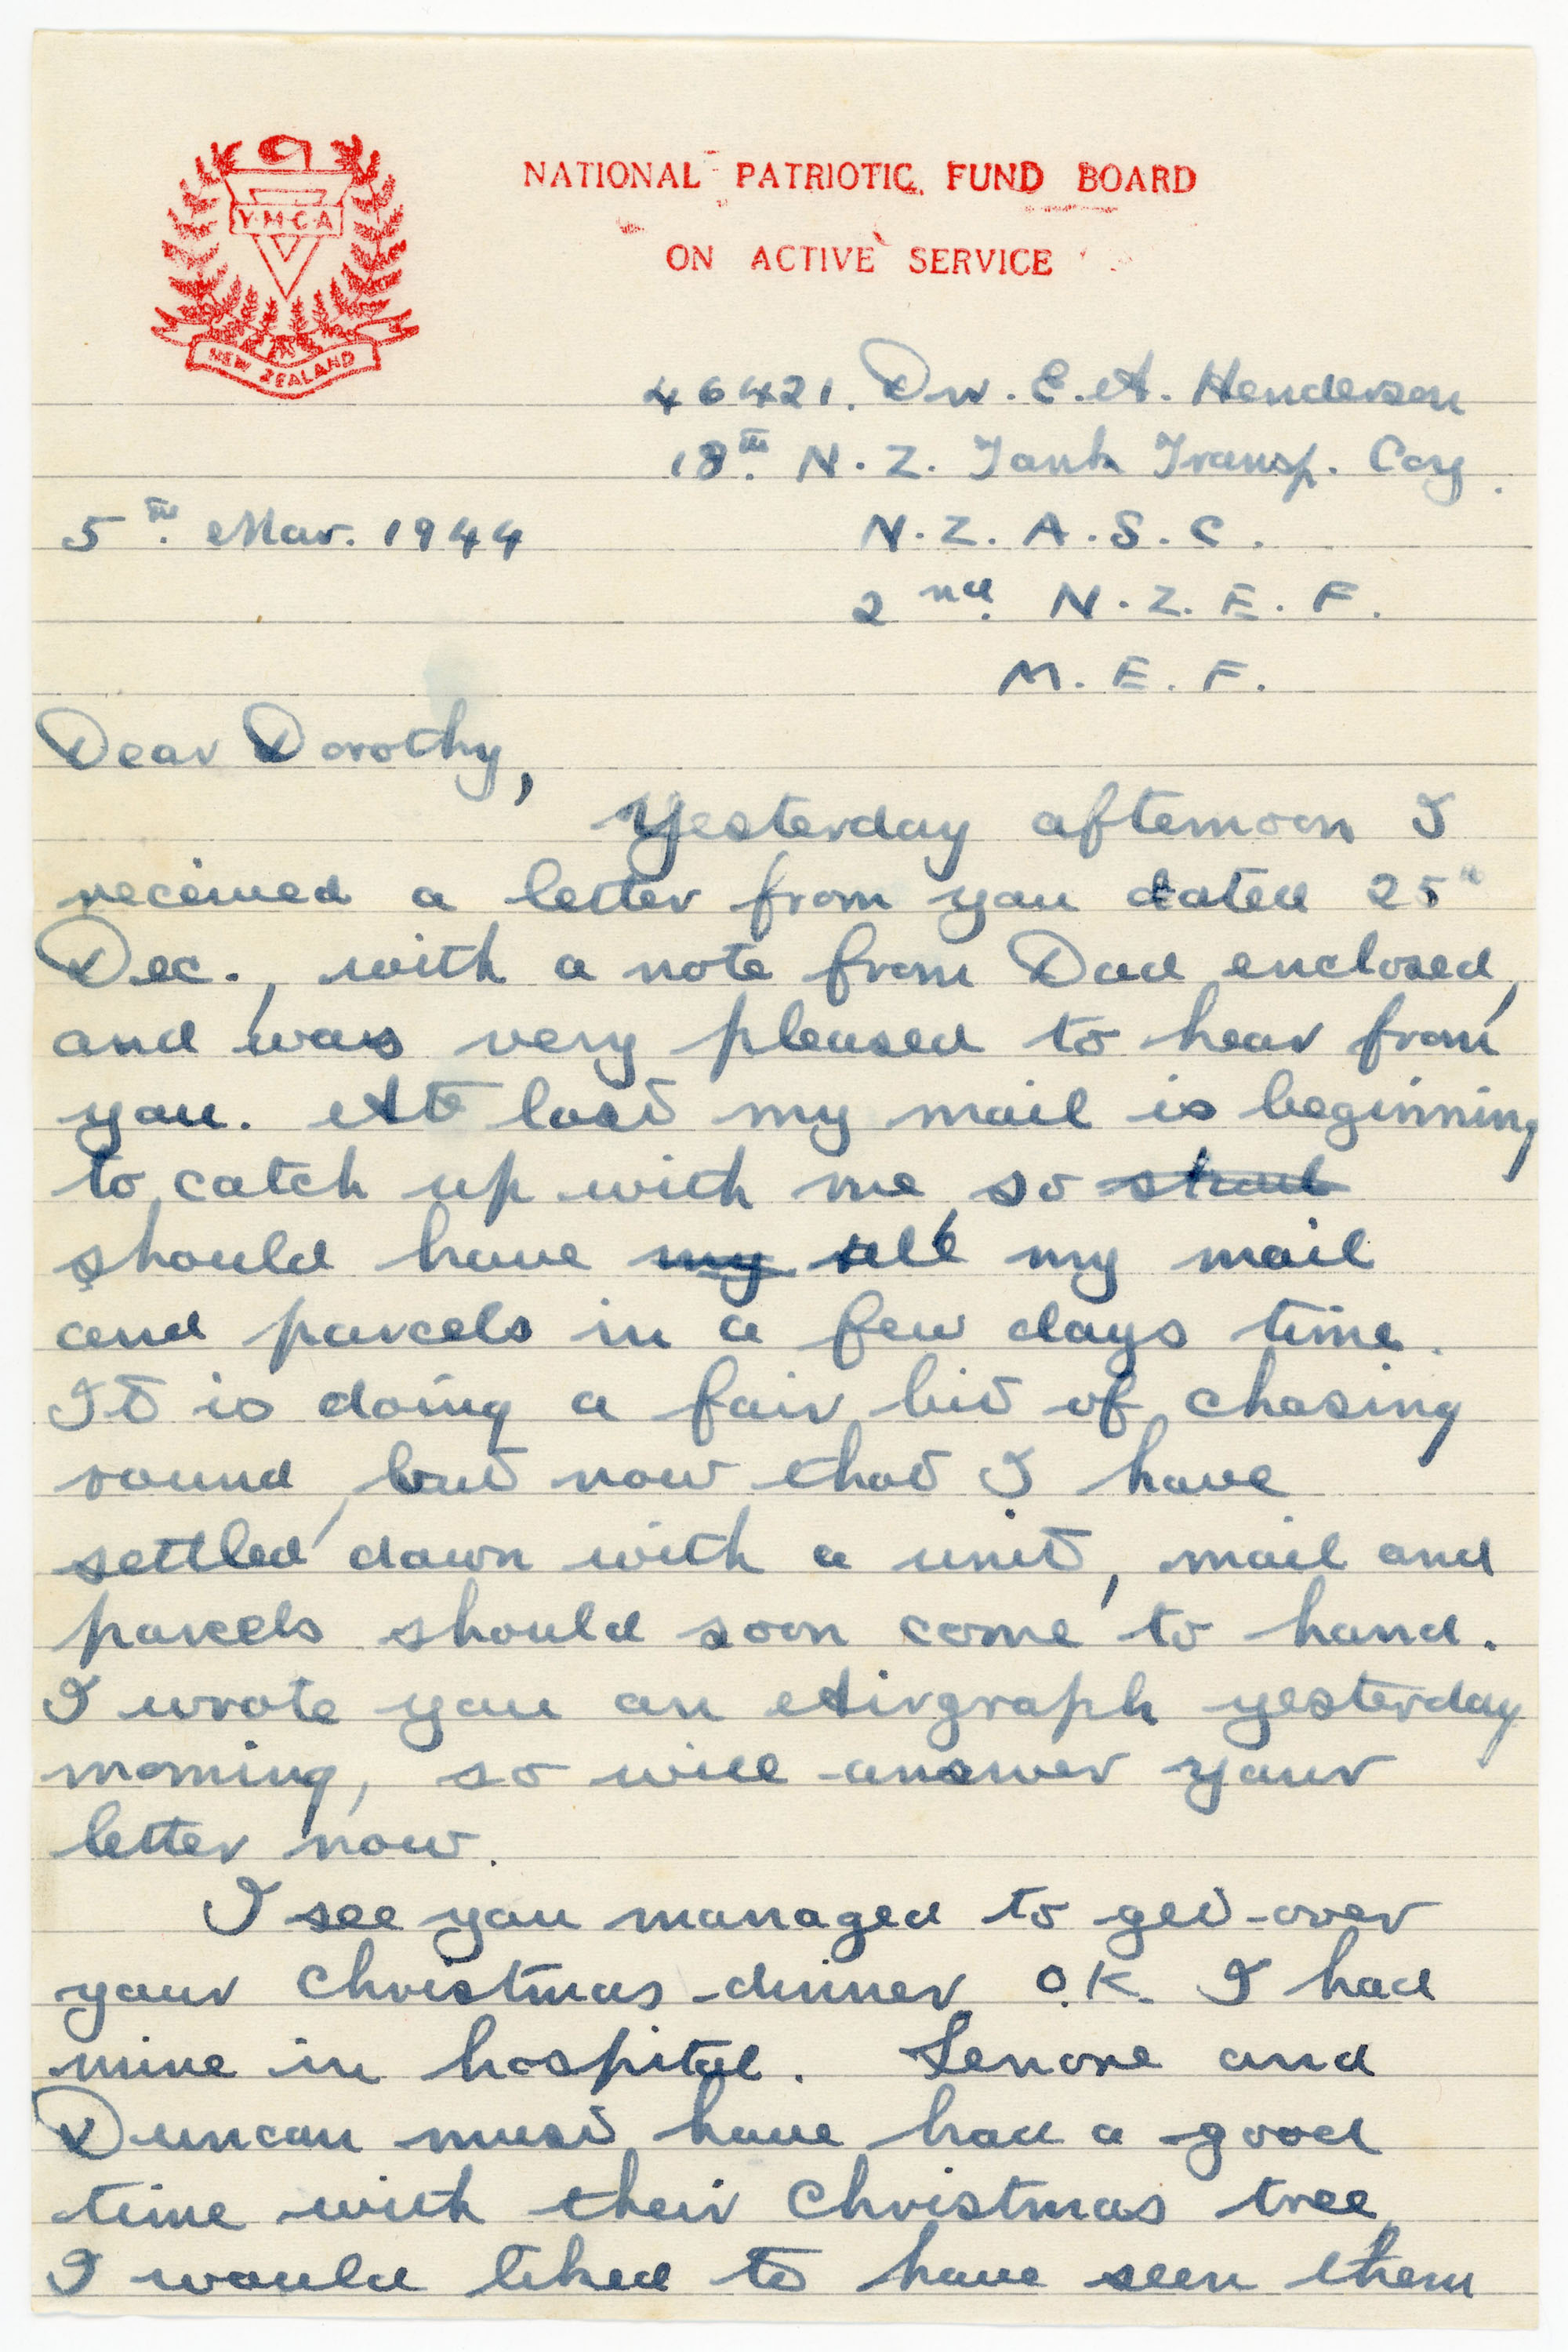 Y.M.C.A
NEW ZEALAND
NATIONAL PATRIOTIC FUND BOARD
ON ACTIVE SERVICE
46421. Dvr. E. A. Henderson
18th. N. Z. Tank Transp. Coy.
5th. Mar. 1944
N. Z. A. S. C.
2nd. N. Z. E. F.
M. E. F.
Dear Dorothy,
Yesterday afternoon I
received a letter from you dated 25th
Dec., with a note from Dad enclosed,
and was very pleased to hear from
you. At last my mail is beginning
to catch up with me, so
should have my all my mail
and parcels in a few days time.
It is doing a fair bit of chasing
round, but now that I have
settled down with a unit, mail and
parcels should soon come to hand.
I wrote you an Airgraph yesterday
morning, so will answer your
letter now.
I see you managed to get over
your Christmas dinner O.K. I had
mine in hospital. Lenore and
Duncan must have had a good
time with their Christmas tree,
I would liked to have seen them